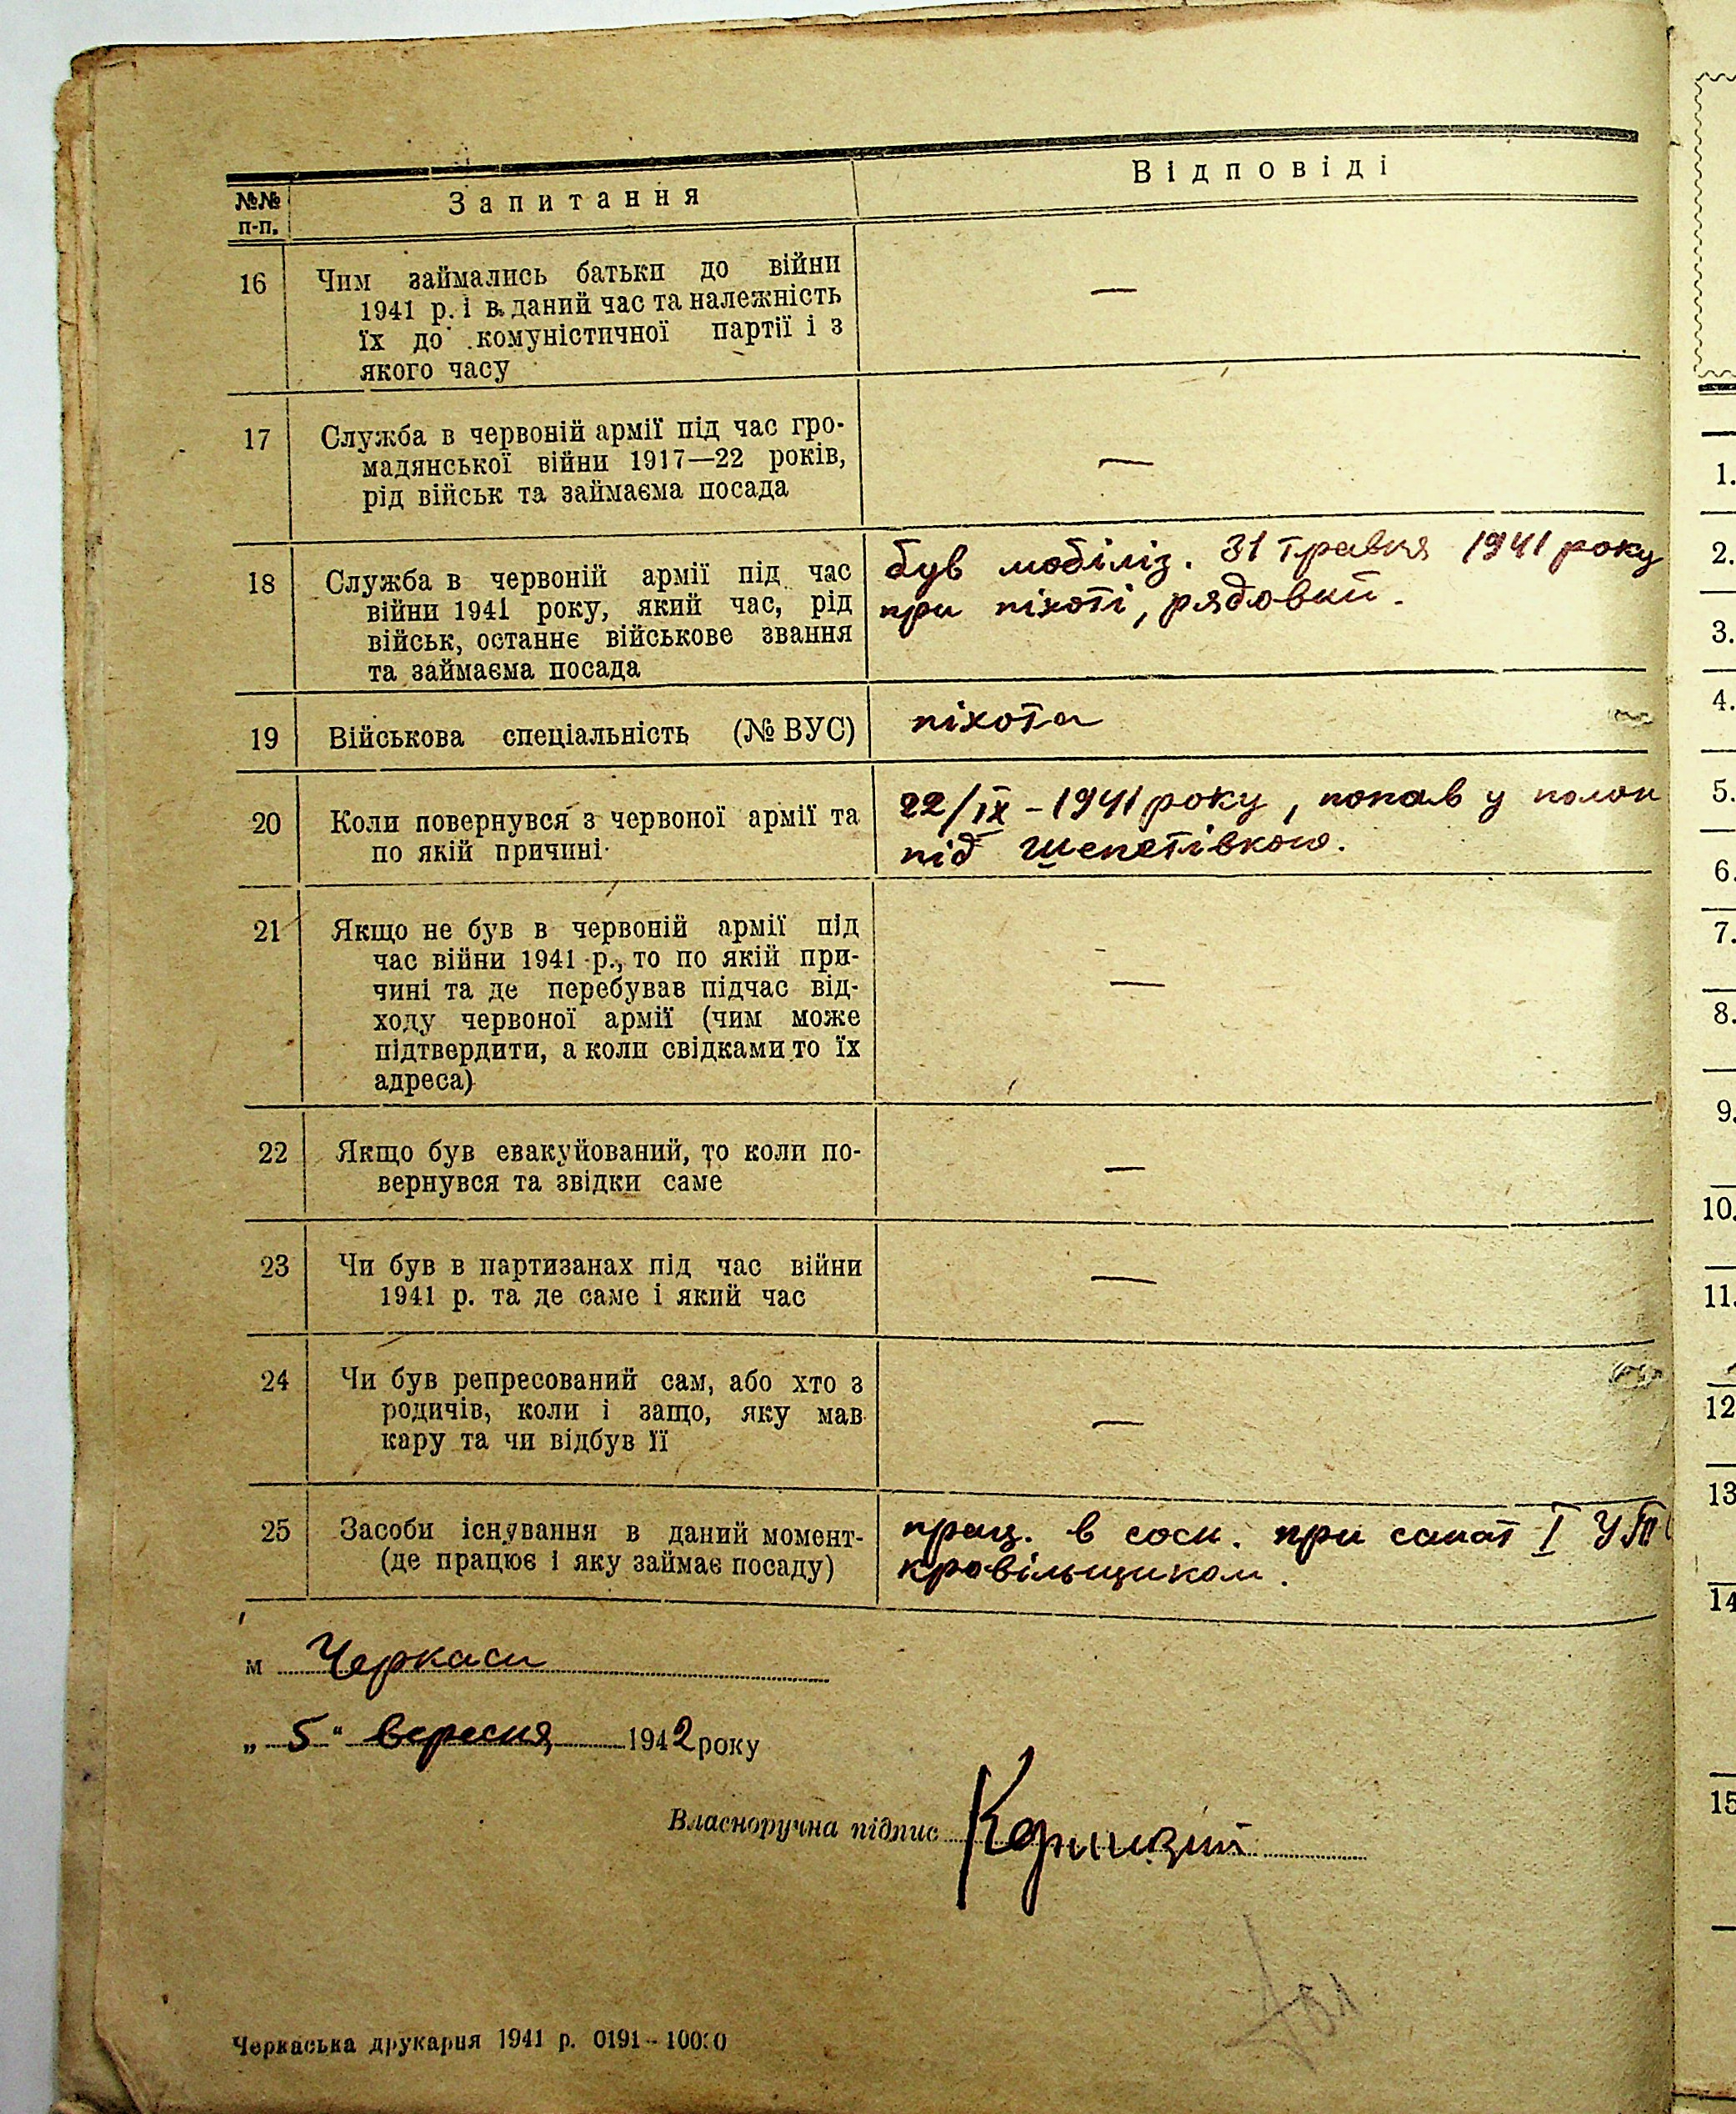 №№ п-п.
Запитання
Відповіді
16
Чим займались батьки до війни
1941 р. і в даний час та належність
їх до комуністичної партії і з
якого часу
—
17
Служба в червоній армії під час гро-
мадянської війни 1917—22 років,
рід військ та займаєма посада
—
18
Служба в червоній армії під час
війни 1941 року, який час, рід
військ, останнє військове звання
та займаєма посада
був мобіліз. 31 травня 1941 року
при піхоті, рядовий.
19
Військова спеціальність (№ ВУС)
піхота
20
Коли повернувся з червоної армії та
по якій причині
22/ІХ - 1941 року, попав у полон
під Шепетівкою.
21
Якщо не був в червоній армії під
час війни 1941 р., то по якій при-
чині та де перебував підчас від-
ходу червоної армії (чим може
підтвердити, а коли свідками то їх
адреса)
—
22
Якщо був евакуйований, то коли по-
вернувся та звідки саме
—
23
Чи був в партизанах під час війни
1941 р. та де саме і який час
—
24
Чи був репресований сам, або хто з
родичів, коли і защо, яку мав
кару та чи відбув її
—
25
Засоби існування в даний момент-
(де працює і яку займає посаду)
прац. в сосн. при санат І
кровільщиком.
м Черкаси
„ 5 " вересня 1942 року
Власноручна підпис
Черкаська друкарня 1941 р. 0191-10000
1.
2.
3.
4.
5.
6.
7.
8.
9.
10.
11.
12
13
14
15